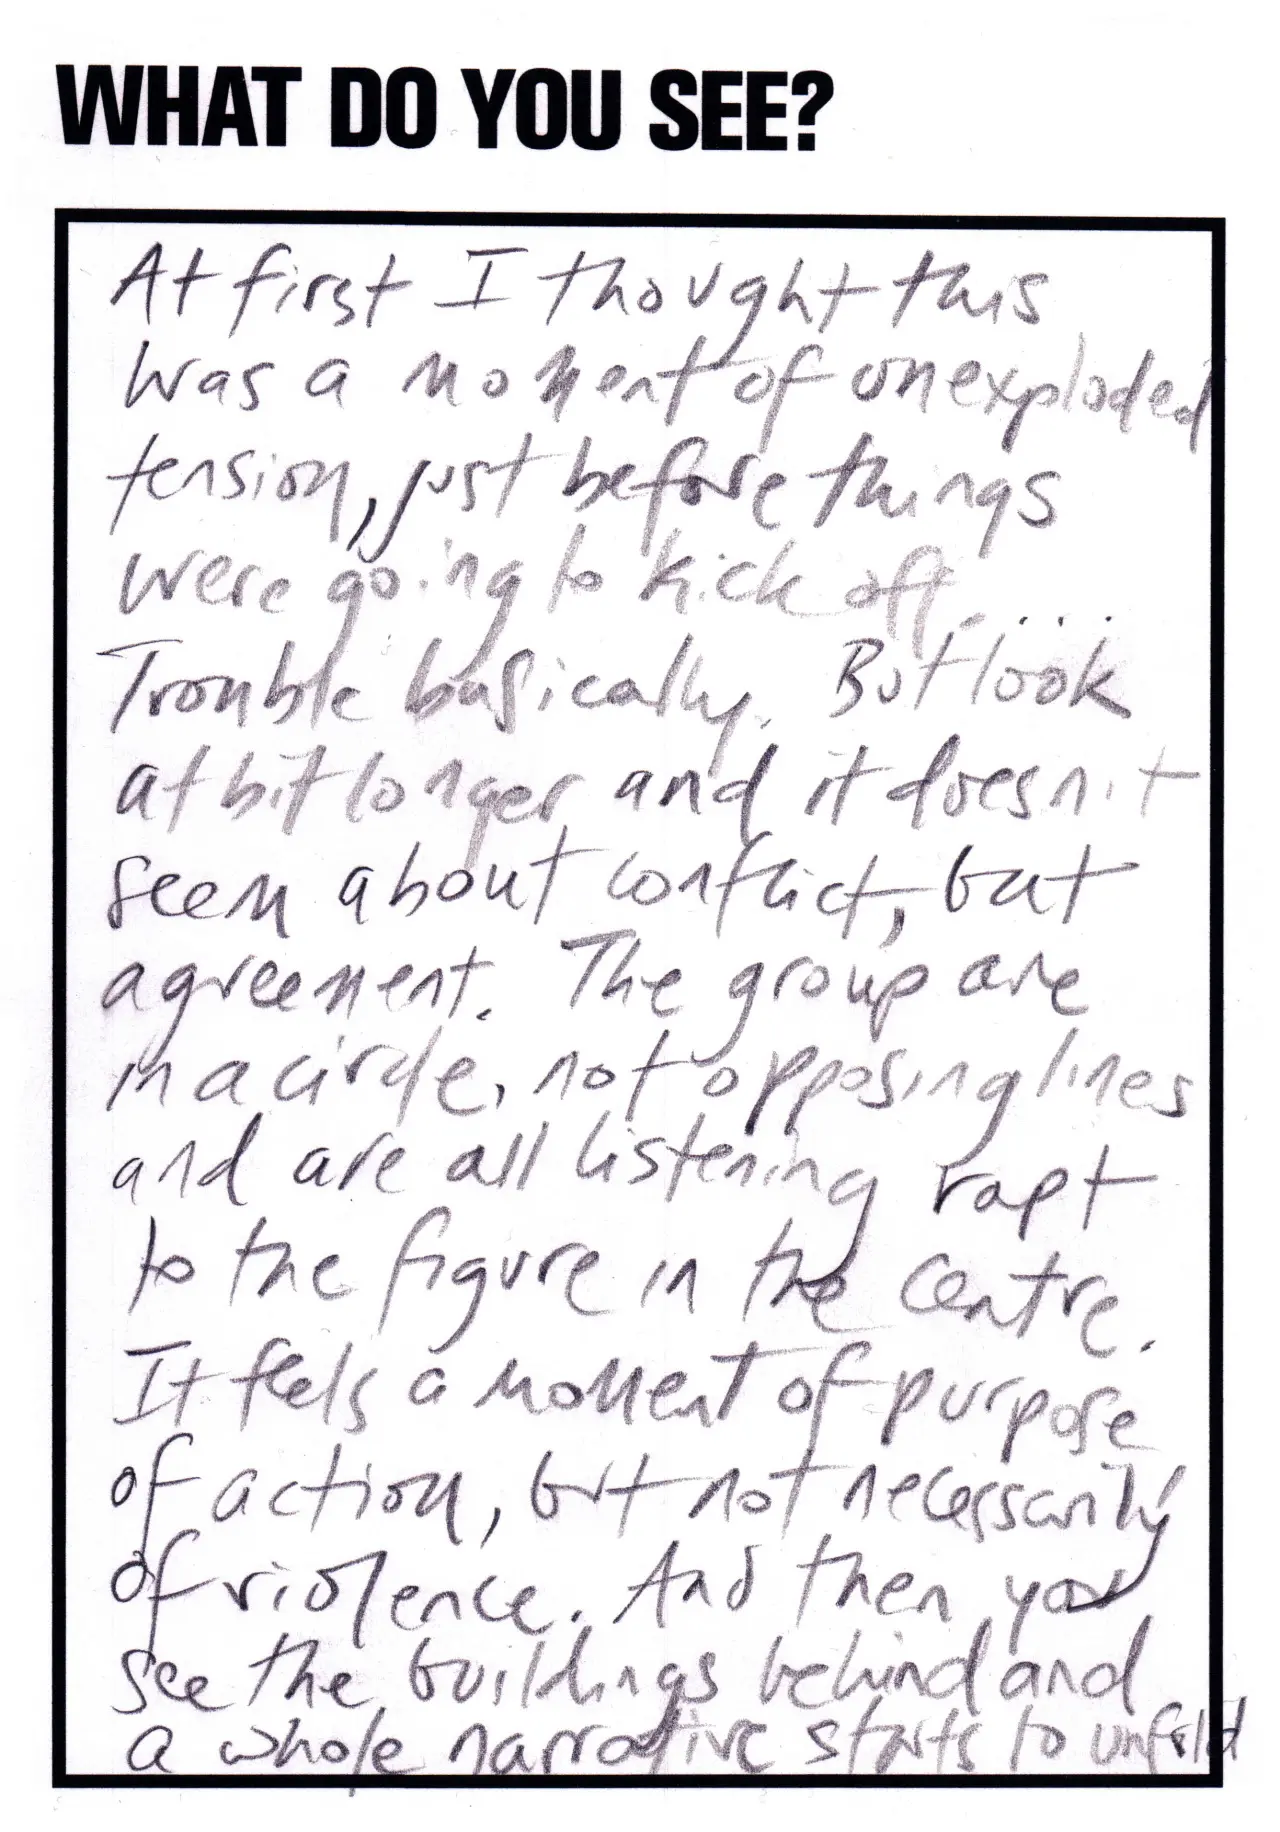 WHAT DO YOU SEE?
At first I thought this
was a moment of unexploded
tension, just before things
were going to kick off.....
Trouble basically. But look
at bit longer and it doesn't
seem about conflict, but
agreement. The group are
in a circle, not opposing lines
and are all listening rapt
to the figure in the centre.
It feels a moment of purpose
of action, but not necessarily
of violence. And then you
see the buildings behind and
a whole narrative starts to unfold